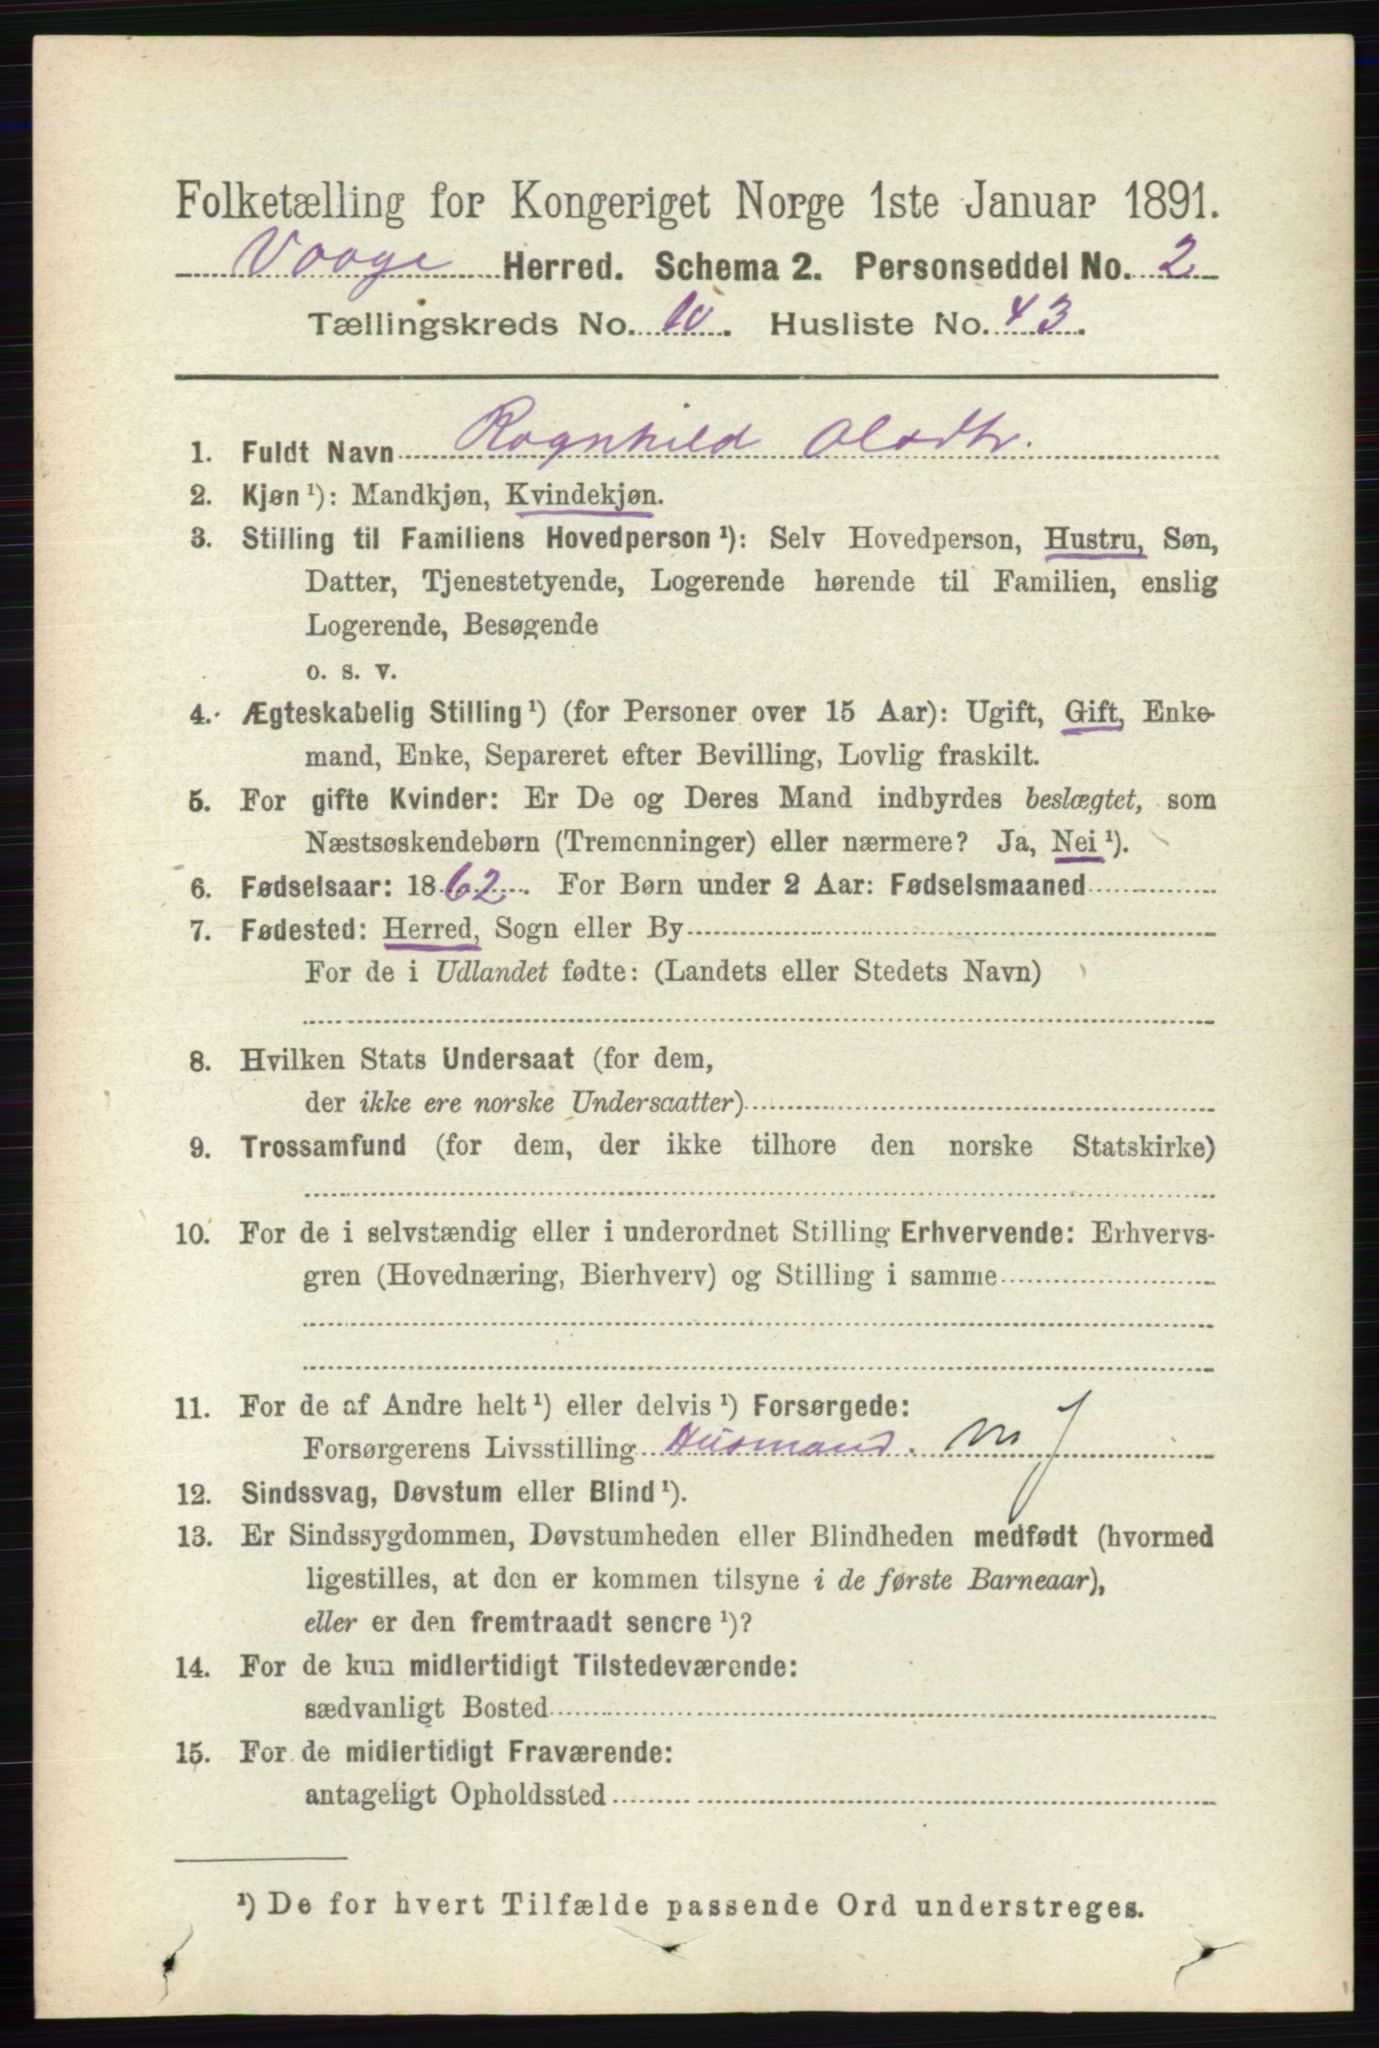 Folketælling for Kongeriget Norge 1ste Januar 1891.
Vaage Herred. Schema 2. Personseddel No. 2
Tællingskreds No. 10. Husliste No. 43.
1. Fuldt Navn Ragnhild Olsdtr.
2. Kjøn ¹): Mandkjøn, Kvindekjøn.
3. Stilling til Familiens Hovedperson ¹): Selv Hovedperson, Hustru, Søn,
Datter, Tjenestetyende, Logerende hørende til Familien, enslig
Logerende, Besøgende
o. s. v.
4. Ægteskabelig Stilling ¹) (for Personer over 15 Aar): Ugift, Gift, Enke-
mand, Enke, Separeret efter Bevilling, Lovlig fraskilt.
5. For gifte Kvinder: Er De og Deres Mand indbyrdes beslægtet, som
Næstsøskendebørn (Tremenninger) eller nærmere? Ja, Nei ¹).
6. Fødselsaar: 1862. For Børn under 2 Aar: Fødselsmaaned
7. Fødested: Herred, Sogn eller By
For de i Udlandet fødte: (Landets eller Stedets Navn)
8. Hvilken Stats Undersaat (for dem,
der ikke ere norske Undersaatter)
9. Trossamfund (for dem, der ikke tilhore den norske Statskirke)
10. For de i selvstændig eller i underordnet Stilling Erhvervende: Erhvervs-
gren (Hovednæring, Bierhverv) og Stilling i samme
11. For de af Andre helt ¹) eller delvis ¹) Forsørgede:
Forsørgerens Livsstilling Husmand. m J
12. Sindssvag, Døvstum eller Blind ¹).
13. Er Sindssygdommen, Døvstumheden eller Blindheden medfødt (hvormed
ligestilles, at den er kommen tilsyne i de første Barneaar),
eller er den fremtraadt senere ¹)?
14. For de kun midlertidigt Tilstedeværende:
sædvanligt Bosted
15. For de midlertidigt Fraværende:
antageligt Opholdssted
¹) De for hvert Tilfælde passende Ord understreges.